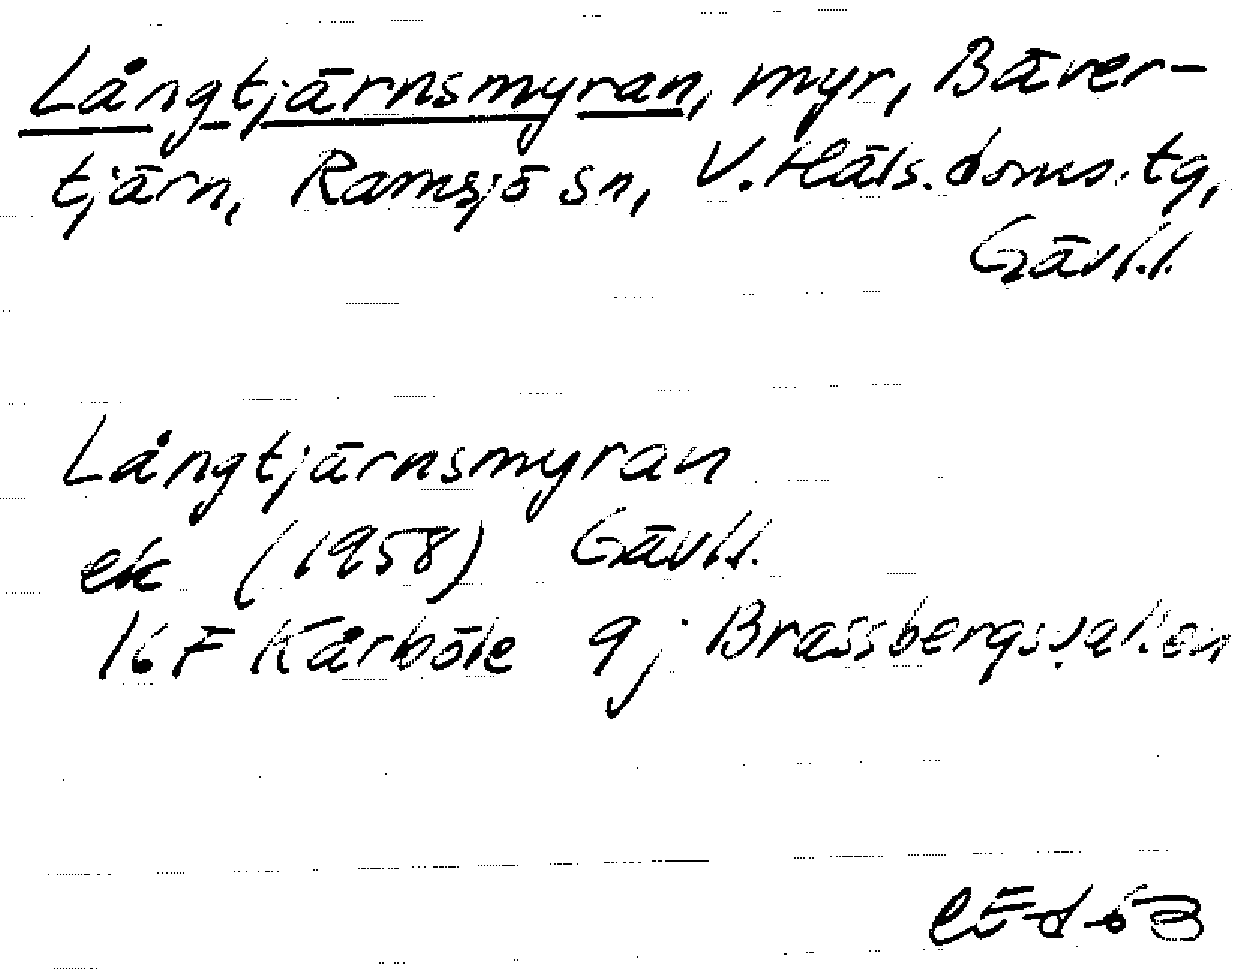 Långtjärnsmyran, myr, Bäver-
tjärn, Ramsjö sn, V. Häls. doms. tg,
Gävl.l.
Långtjärnsmyran
ek (1958) Gävl.l.
16F Kårböle 9j Brassbergsvallen